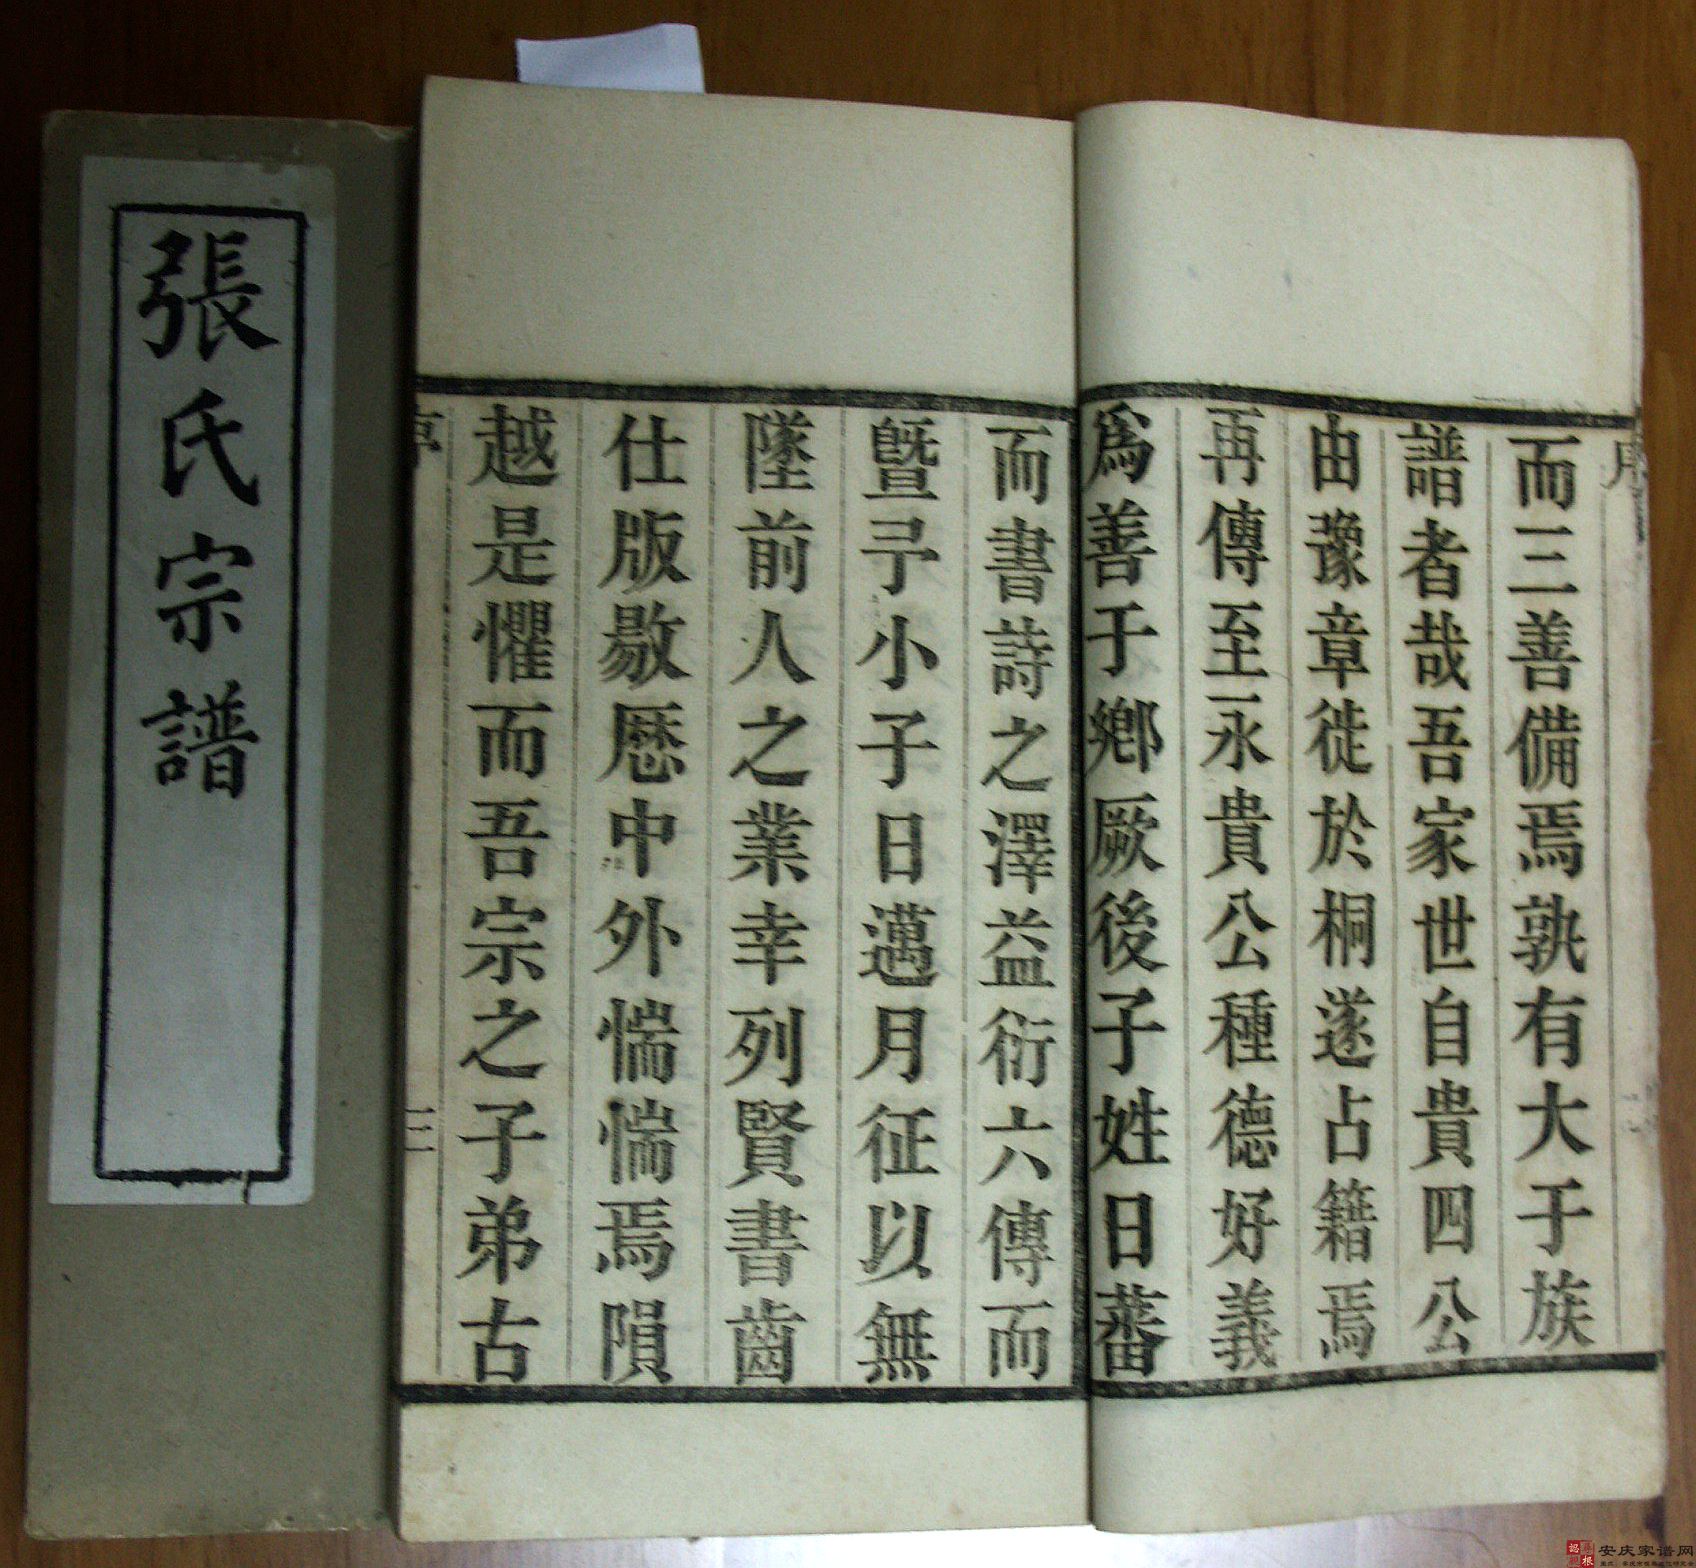 張氏宗譜
序
而三善備焉孰有大于族
譜者哉吾家世自貴四公
由豫章徙於桐遂占籍焉
再傳至永貴公種德好義
為善于鄉厥後子姓日蕃
而書詩之澤益衍六傳而
曁予小子日邁月征以無
墜前人之業幸列賢書齒
仕版敭歷中外惴惴焉隕
越是懼而吾宗之子弟古
序
三
安庆家谱网